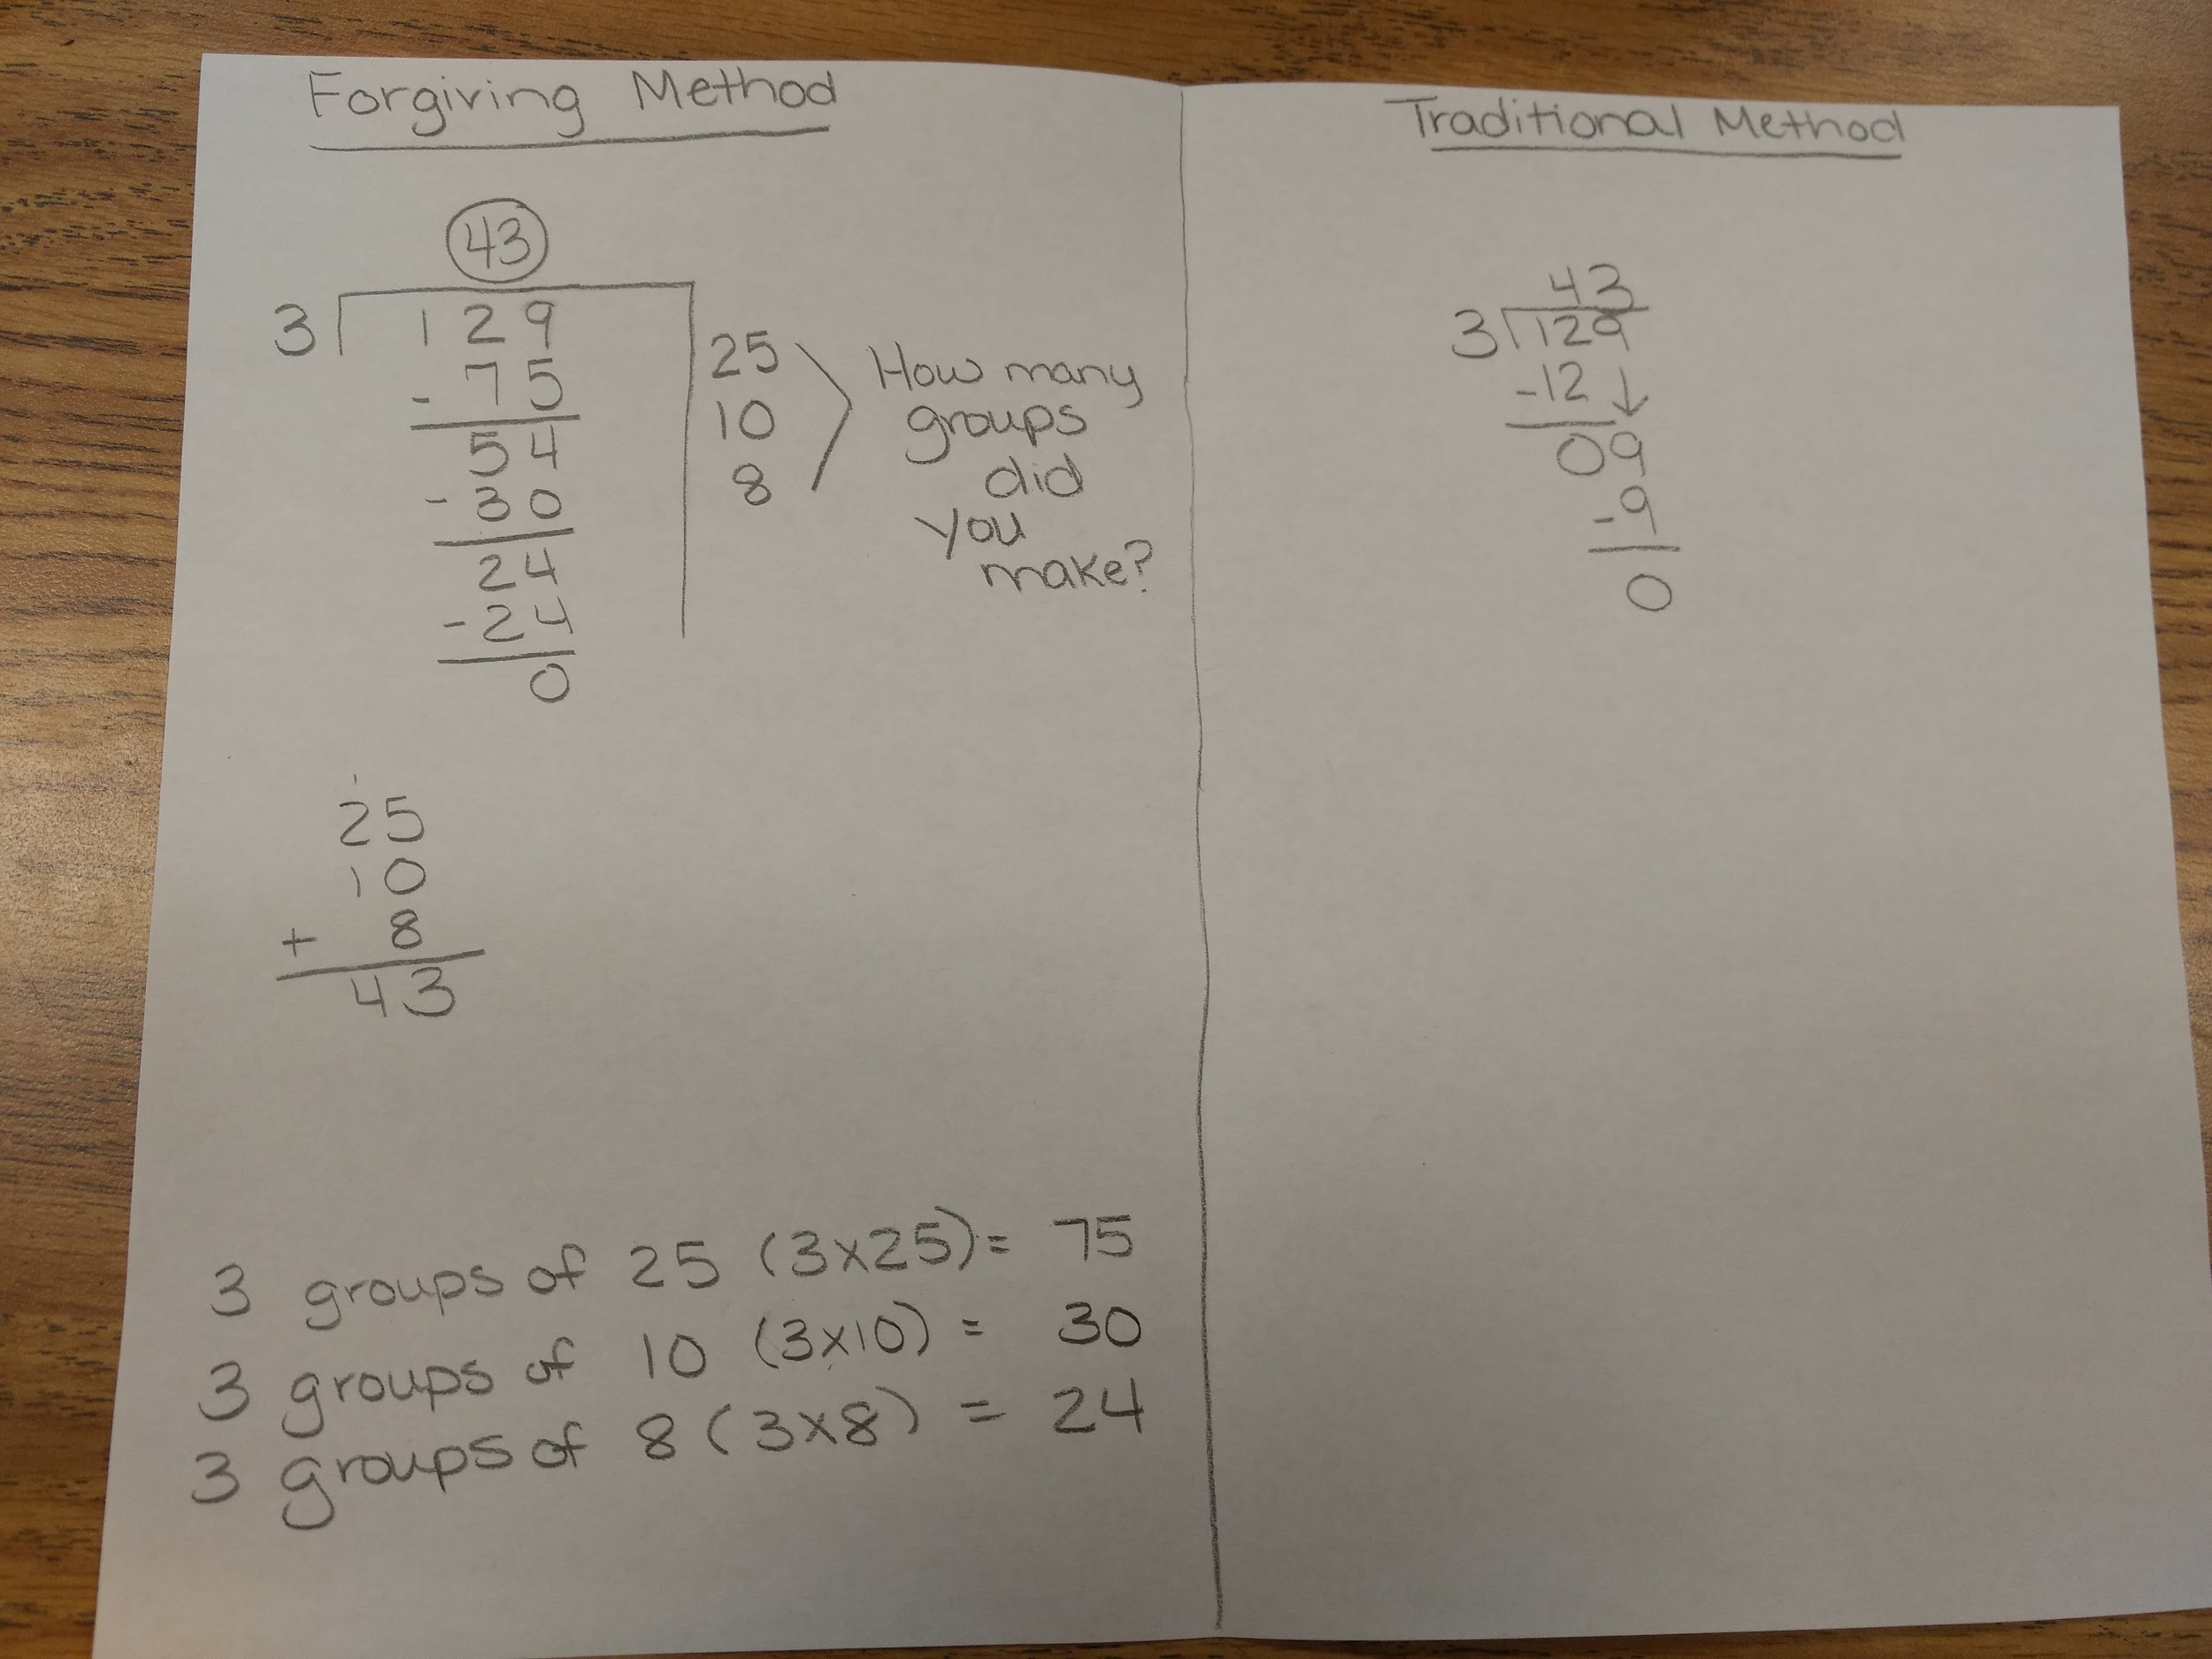 Forgiving Method
43
3 129
- 75
54
- 30
24
- 24
0
25
10
8
How many
groups
did
you
make?
1
25
10
+ 8
43
3 groups of 25 (3x25) = 75
3 groups of 10 (3x10) = 30
3 groups of 8 (3x8) = 24
Traditional Method
43
3 129
-12 ↓
09
-9
0